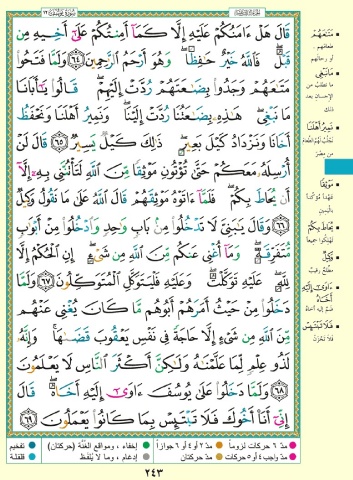 سُورَةُ يُوسُفَ ١٢
قَالَ هَلْ ءَامَنُكُمْ عَلَيْهِ إِلَّا كَمَآ أَمِنتُكُمْ عَلَىٰٓ أَخِيهِ مِن
قَبْلُ فَٱللَّهُ خَيْرٌ حَٰفِظًا وَهُوَ أَرْحَمُ ٱلرَّٰحِمِينَ ﴿٦٤﴾ وَلَمَّا فَتَحُوا۟
مَتَٰعَهُمْ وَجَدُوا۟ بِضَٰعَتَهُمْ رُدَّتْ إِلَيْهِمْ قَالُوا۟ يَٰٓأَبَانَا
مَا نَبْغِى هَٰذِهِۦ بِضَٰعَتُنَا رُدَّتْ إِلَيْنَا وَنَمِيرُ أَهْلَنَا وَنَحْفَظُ
أَخَانَا وَنَزْدَادُ كَيْلَ بَعِيرٍ ذَٰلِكَ كَيْلٌ يَسِيرٌ ﴿٦٥﴾ قَالَ لَنْ
أُرْسِلَهُۥ مَعَكُمْ حَتَّىٰ تُؤْتُونِ مَوْثِقًا مِّنَ ٱللَّهِ لَتَأْتُنَّنِى بِهِۦٓ إِلَّآ
أَن يُحَاطَ بِكُمْ فَلَمَّآ ءَاتَوْهُ مَوْثِقَهُمْ قَالَ ٱللَّهُ عَلَىٰ مَا نَقُولُ وَكِيلٌ
﴿٦٦﴾ وَقَالَ يَٰبَنِىَّ لَا تَدْخُلُوا۟ مِنۢ بَابٍ وَٰحِدٍ وَٱدْخُلُوا۟ مِنْ أَبْوَٰبٍ
مُّتَفَرِّقَةٍ وَمَآ أُغْنِى عَنكُم مِّنَ ٱللَّهِ مِن شَىْءٍ إِنِ ٱلْحُكْمُ إِلَّا
لِلَّهِ عَلَيْهِ تَوَكَّلْتُ وَعَلَيْهِ فَلْيَتَوَكَّلِ ٱلْمُتَوَكِّلُونَ ﴿٦٧﴾ وَلَمَّا
دَخَلُوا۟ مِنْ حَيْثُ أَمَرَهُمْ أَبُوهُم مَّا كَانَ يُغْنِى عَنْهُم
مِّنَ ٱللَّهِ مِن شَىْءٍ إِلَّا حَاجَةً فِى نَفْسِ يَعْقُوبَ قَضَىٰهَا وَإِنَّهُۥ
لَذُو عِلْمٍ لِّمَا عَلَّمْنَٰهُ وَلَٰكِنَّ أَكْثَرَ ٱلنَّاسِ لَا يَعْلَمُونَ
﴿٦٨﴾ وَلَمَّا دَخَلُوا۟ عَلَىٰ يُوسُفَ ءَاوَىٰٓ إِلَيْهِ أَخَاهُ قَالَ
إِنِّىٓ أَنَا۠ أَخُوكَ فَلَا تَبْتَئِسْ بِمَا كَانُوا۟ يَعْمَلُونَ ﴿٦٩﴾
مَتَٰعَهُمْ
طعامهم
أو رحالهم
مَا نَبْغِى
ما نطلب من
الإحسان بعد
ذلك
نَمِيرُ أَهْلَنَا
نجلب لهم الطعام
من مصر
مَوْثِقًا
عهداً مؤكّداً
باليمين
يُحَاطَ بِكُمْ
تهلكوا جميعاً
وَكِيلٌ
مطّلع رقيب
ءَاوَىٰٓ إِلَيْهِ
أَخَاهُ
ضمّ إليه أخاه
فَلَا تَبْتَئِسْ
فلا تحزن
مدّ ٦ حركات لزوماً مدّ ٢ أو ٤ أو ٦ جوازاً إخفاء، ومواقع الغُنَّة (حركتان) تفخيم
مدّ واجب ٤ أو ٥ حركات مدّ حركتان إدغام، وما لا يُلفَظ قلقلة
٢٤٣